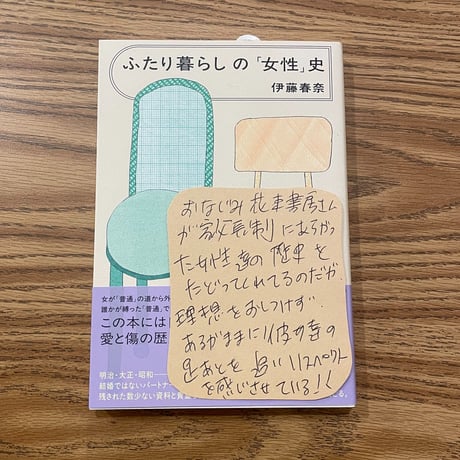 ふたり暮らしの「女性」史
伊藤春奈
おなじみ花束書房さん
が家父長制にあらがっ
た女性達の歴史を
たどってくれてるのだが、
理想をおしつけず
あるがままに彼女等の
足あとを追いリスペクト
を感じさせている!!
女が「普通」の道から外
誰かが縛った「普通」で
この本には
愛と傷の歴
明治・大正・昭和──
結婚ではないパートナー
残された数少ない資料と